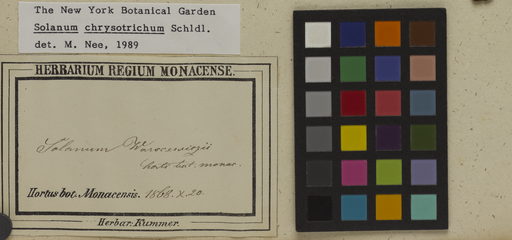 The New York Botanical Garden
Solanum chrysotrichum Schldl.
det. M. Nee, 1989
HERBARIUM REGIUM MONACENSE.
Solanum Warscewiczii
horto bot. monac.
Hortus bot. Monacensis. 1868. X. 20.
Herbar. Kummer.